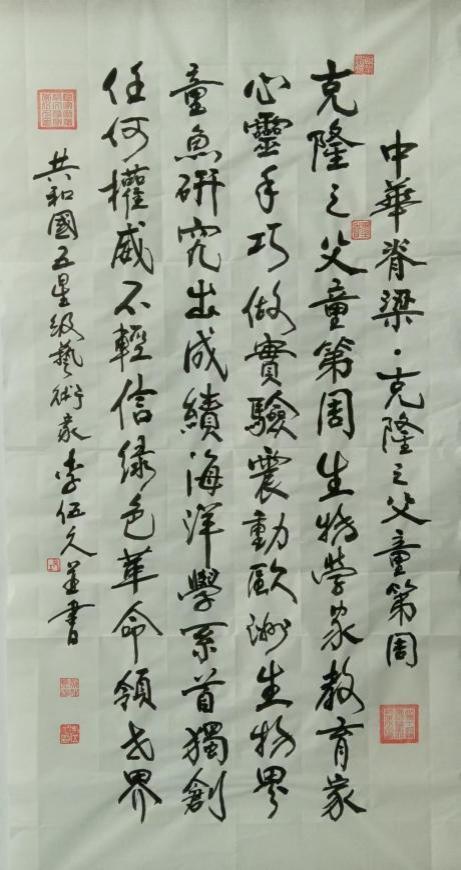 中華脊梁·克隆之父童第周
克隆之父童第周生物學家教育家
心靈手巧做實驗震動歐洲生物界
童魚研究出成績海洋學系首獨創
任何權威不輕信绿色革命領世界
共和國五星级藝術家李伍久並書